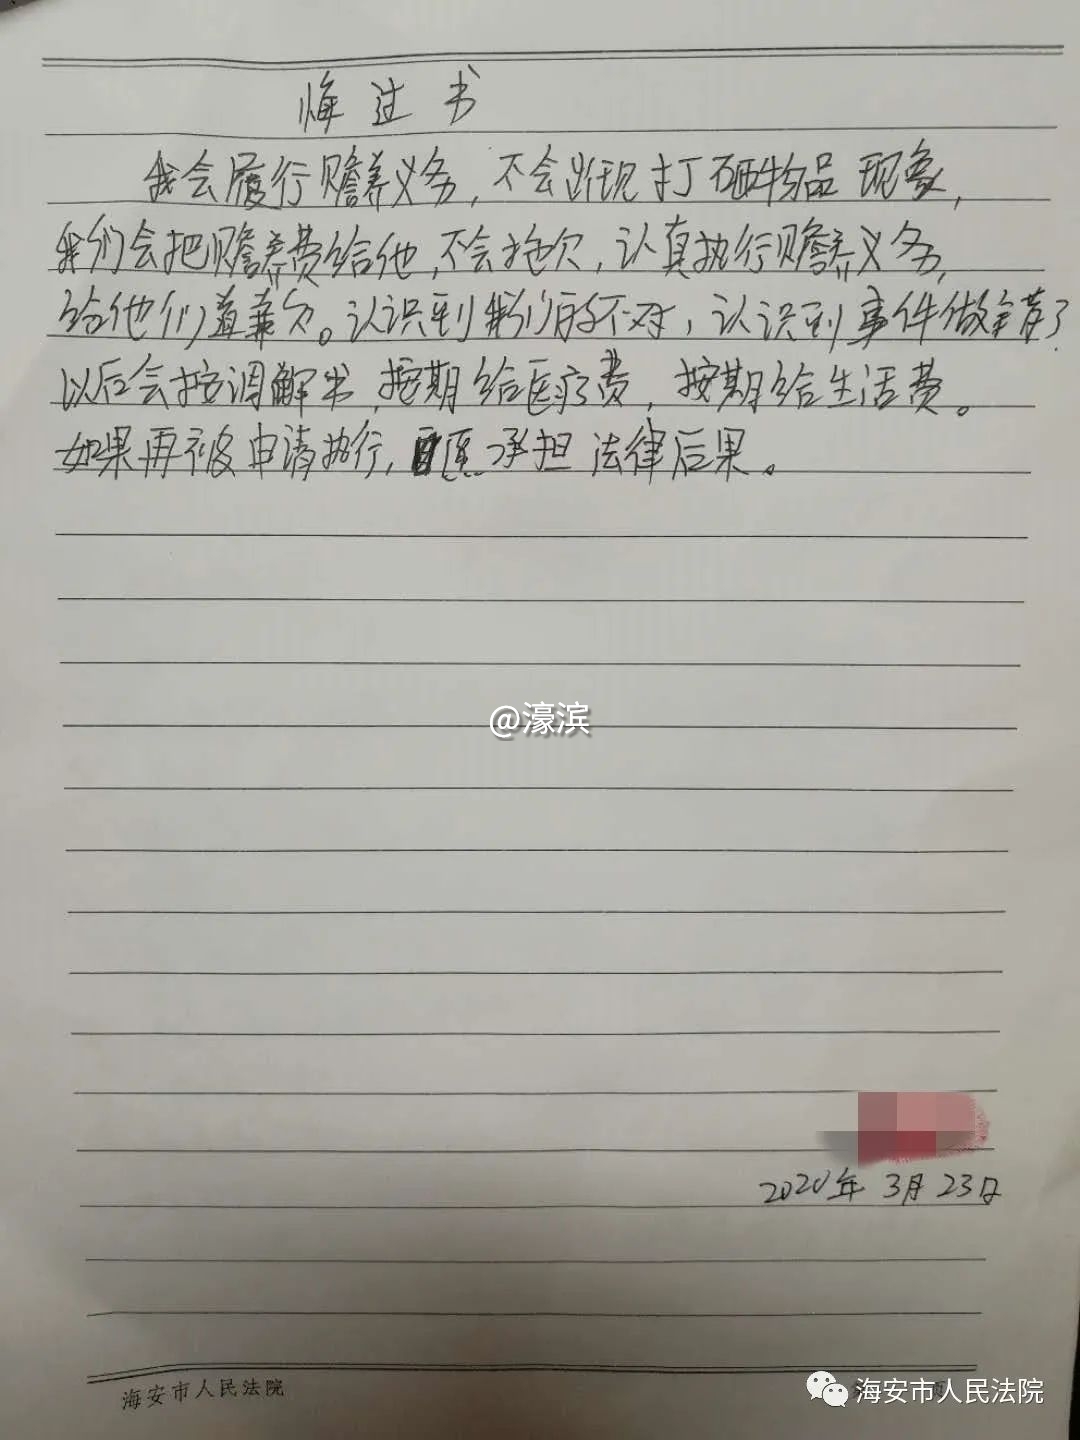 悔过书
我会履行赡养义务，不会出现打砸物品现象，
我们会把赡养费给他，不会拖欠，认真执行赡养义务，
给他们道歉。认识到我们的不对，认识到事件做错了
以后会按调解书，按期给医疗费，按期给生活费。
如果再被申请执行，愿承担法律后果。
@濠滨
2020年3月23日
海安市人民法院
海安市人民法院